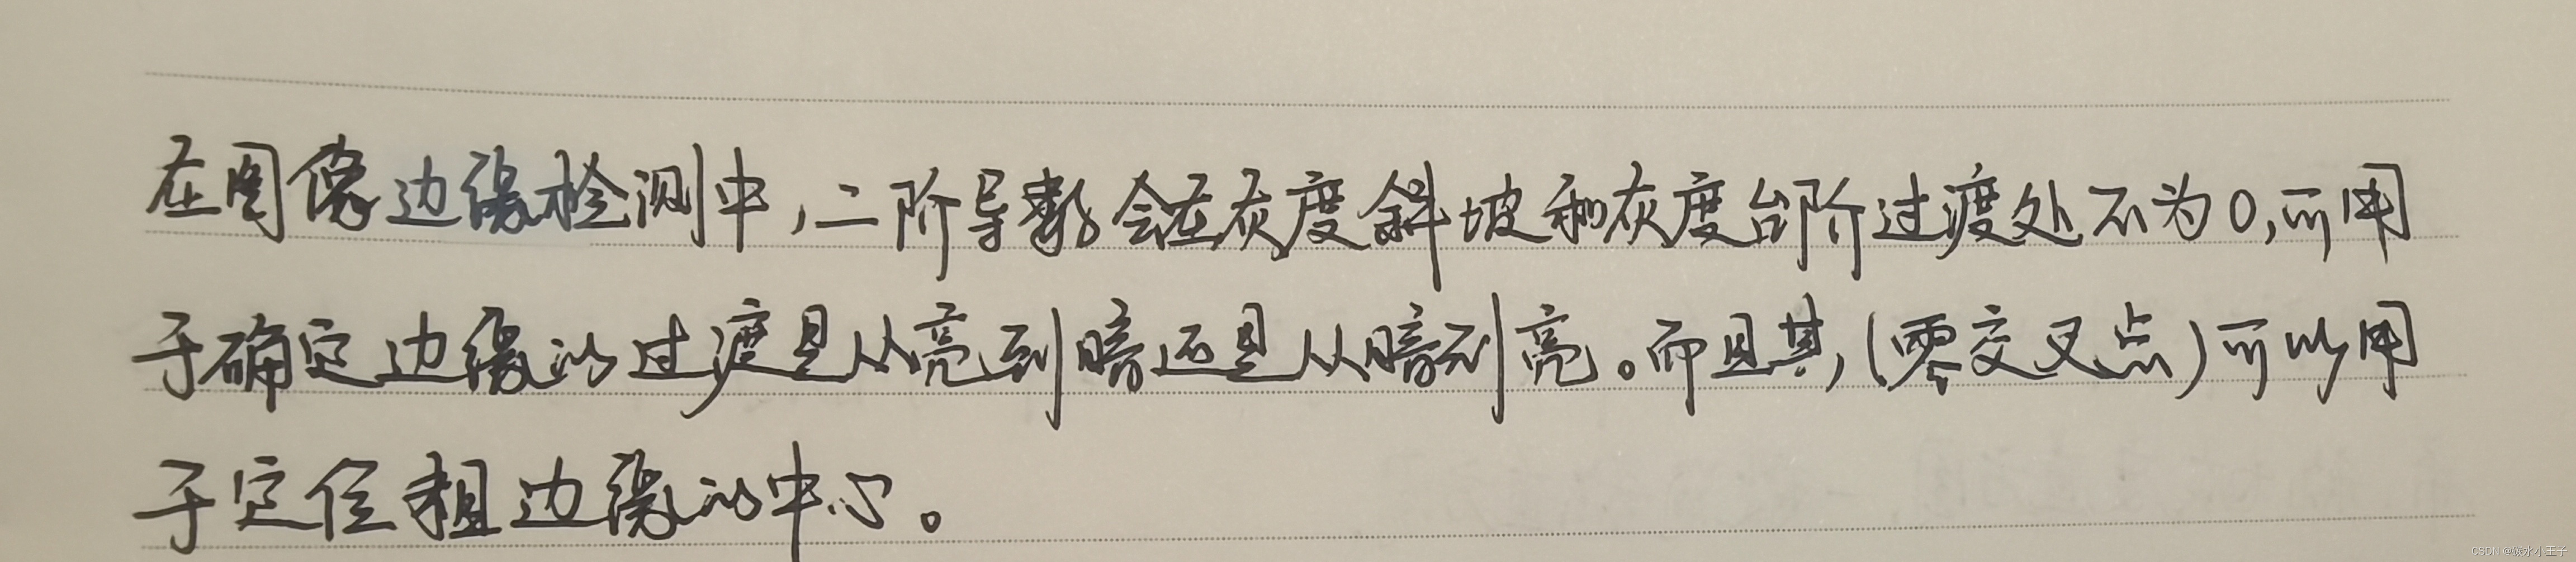 在图像边缘检测中,二阶导数会在灰度斜坡和灰度台阶过渡处不为0,可用
于确定边缘的过渡是从亮到暗还是从暗到亮。而且其,(零交叉点)可以用
于定位粗边缘的中心。
CSDN @碳水小王子